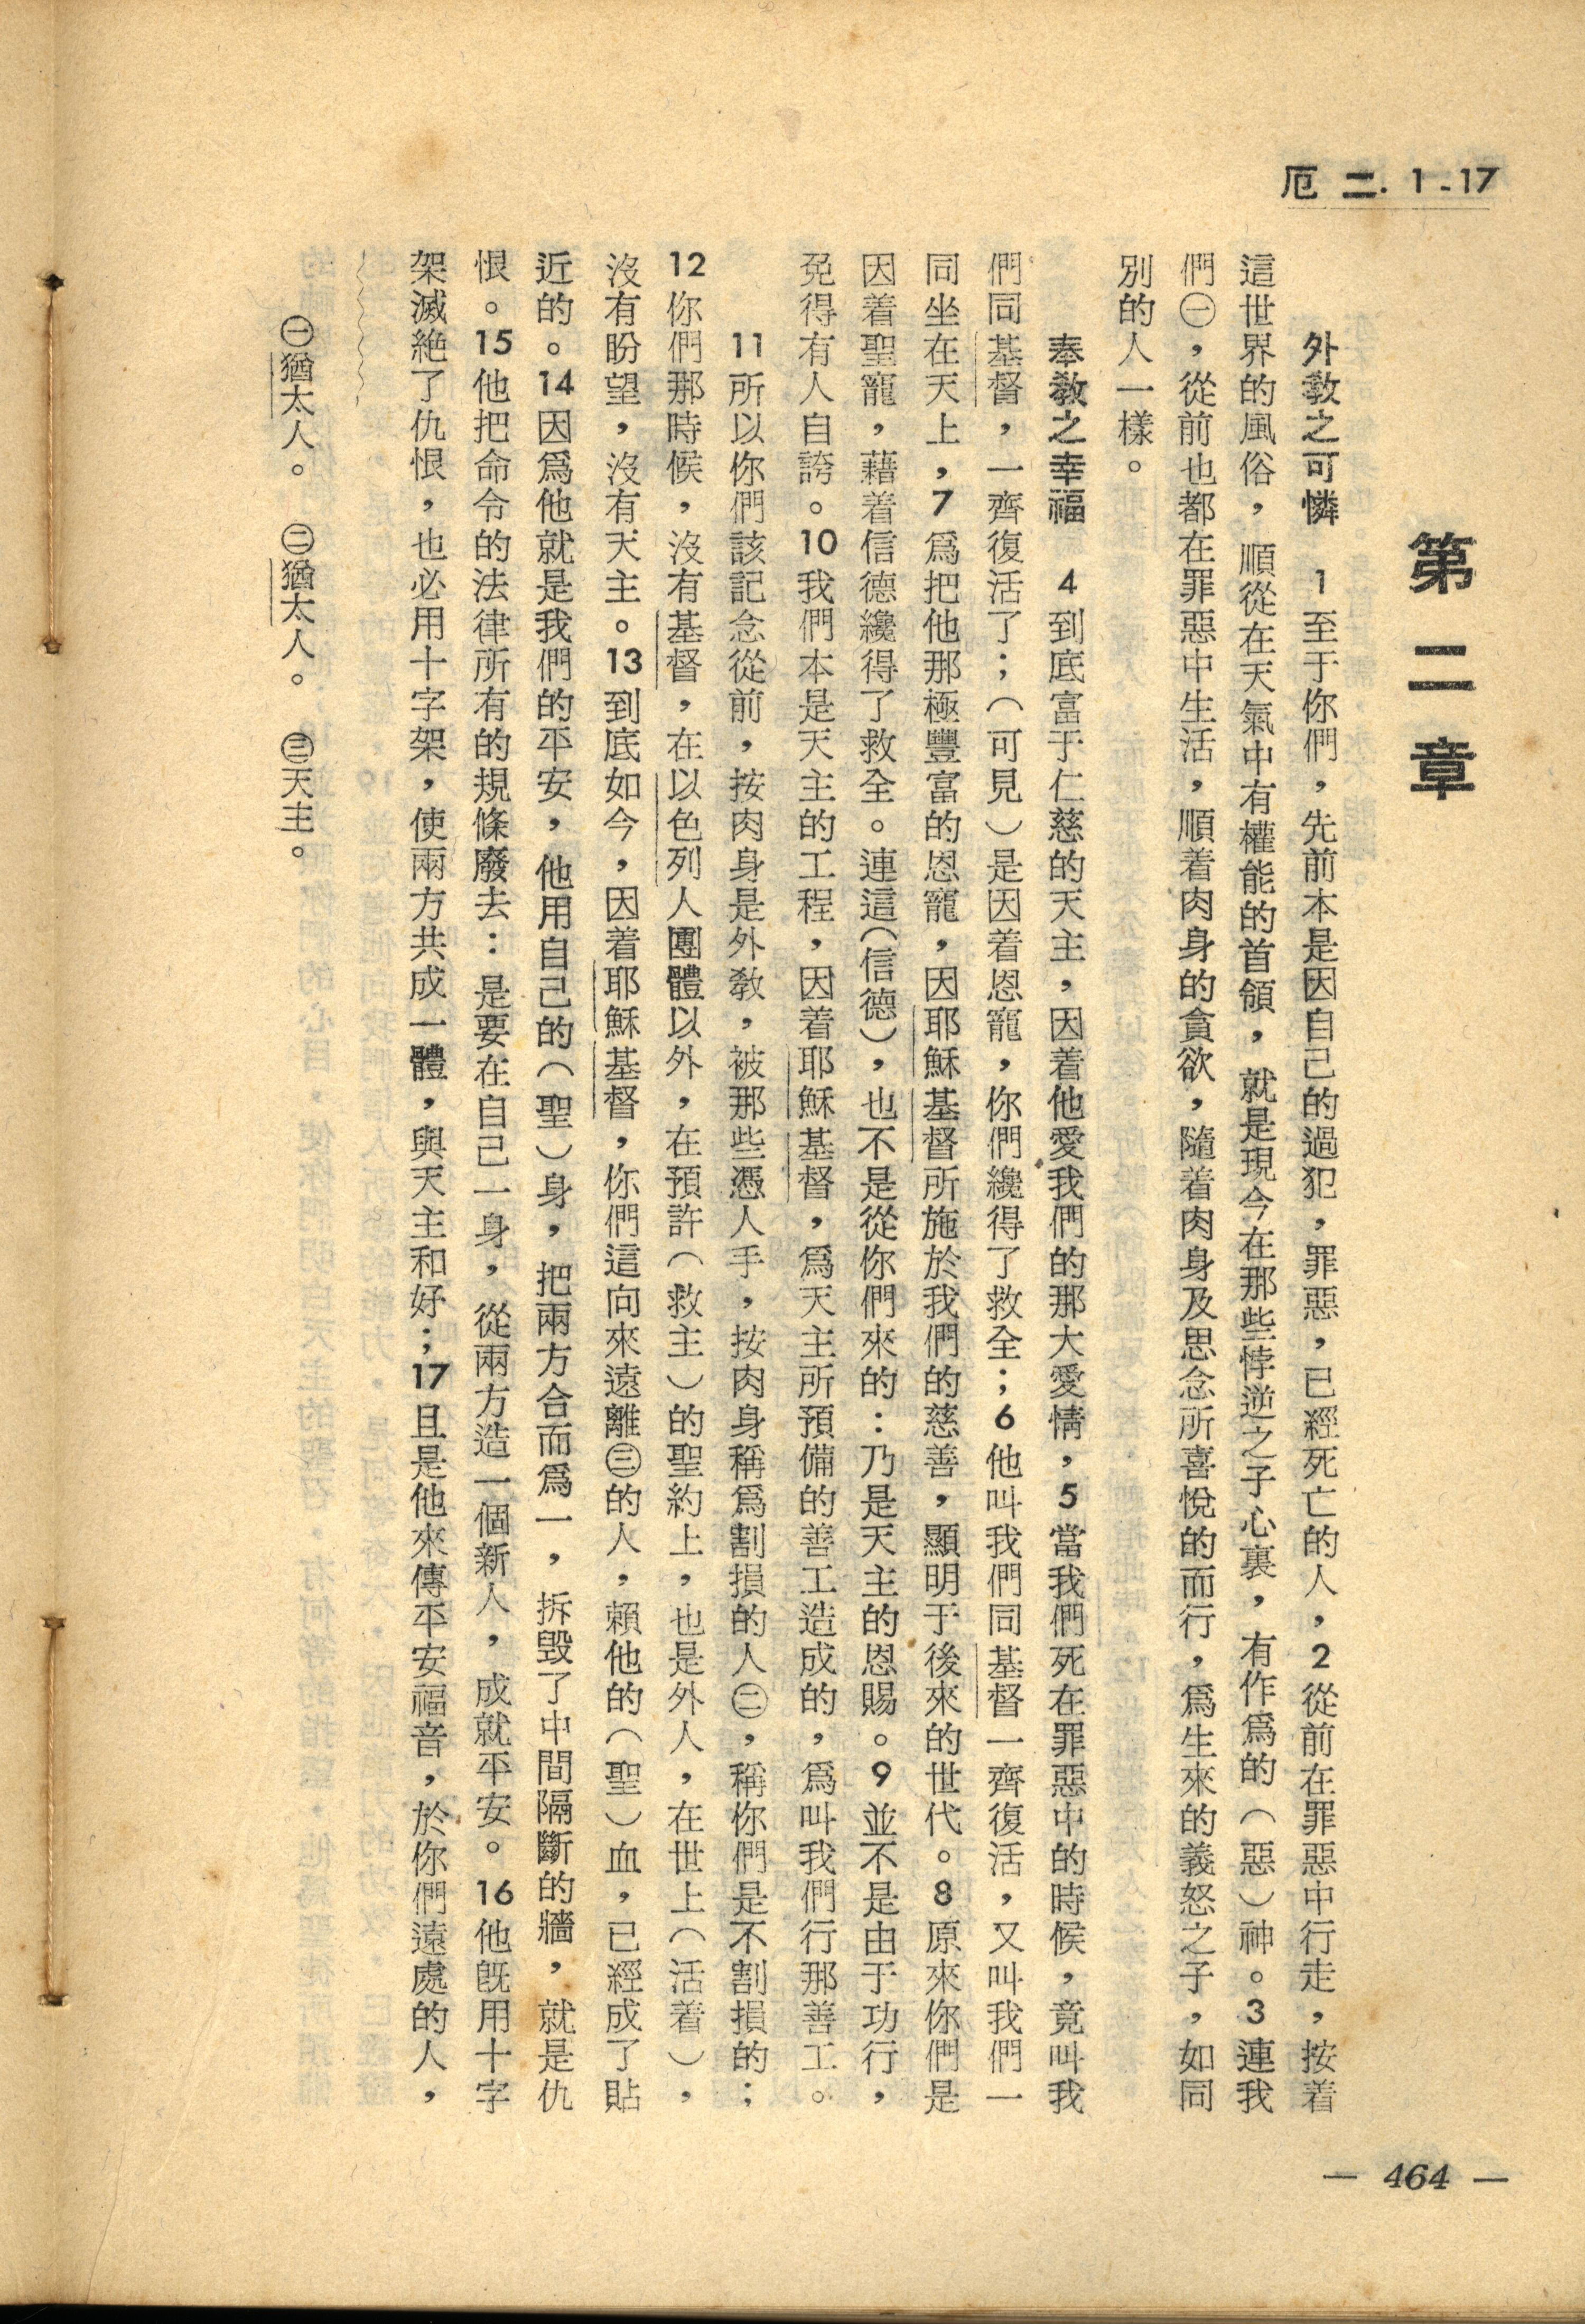 厄 二. 1-17
第二章
外教之可憐　1至于你們，先前本是因自己的過犯，罪惡，已經死亡的人，2從前在罪惡中行走，按着
這世界的風俗，順從在天氣中有權能的首領，就是現今在那些悖逆之子心裏，有作爲的（惡）神。3連我
們㊀，從前也都在罪惡中生活，順着肉身的貪欲，隨着肉身及思念所喜悅的而行，爲生來的義怒之子，如同
別的人一樣。
奉教之幸福　4到底富于仁慈的天主，因着他愛我們的那大愛情，5當我們死在罪惡中的時候，竟叫我
們同基督，一齊復活了；（可見）是因着恩寵，你們纔得了救全；6他叫我們同基督一齊復活，又叫我們一
同坐在天上，7爲把他那極豐富的恩寵，因耶穌基督所施於我們的慈善，顯明于後來的世代。8原來你們是
因着聖寵，藉着信德纔得了救全。連這（信德），也不是從你們來的：乃是天主的恩賜。9並不是由于功行，
免得有人自誇。10我們本是天主的工程，因着耶穌基督，爲天主所預備的善工造成的，爲叫我們行那善工。
11所以你們該記念從前，按肉身是外教，被那些憑人手，按肉身稱爲割損的人㊁，稱你們是不割損的；
12你們那時候，沒有基督，在以色列人團體以外，在預許（救主）的聖約上，也是外人，在世上（活着），
沒有盼望，沒有天主。13到底如今，因着耶穌基督，你們這向來遠離㊂的人，賴他的（聖）血，已經成了貼
近的。14因爲他就是我們的平安，他用自己的（聖）身，把兩方合而爲一，拆毀了中間隔斷的牆，就是仇
恨。15他把命令的法律所有的規條廢去：是要在自己一身，從兩方造一個新人，成就平安。16他旣用十字
架滅絶了仇恨，也必用十字架，使兩方共成一體，與天主和好；17且是他來傳平安福音，於你們遠處的人，
㊀猶太人。　㊁猶太人。　㊂天主。
— 464 —